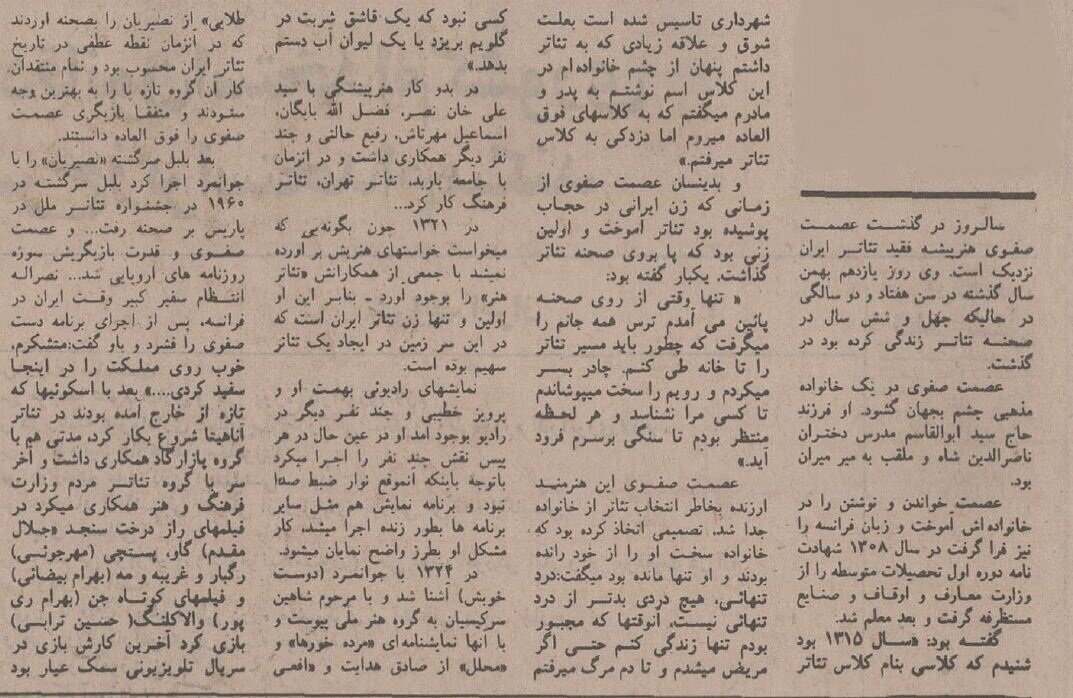 سالروز در گذشت عصمت
صفوی هنرپیشه فقید تئاتر ایران
نزدیک است. وی روز یازدهم بهمن
سال گذشته در سن هفتاد و دو سالگی
در حالیکه چهل و شش سال در
صحنه تئاتر زندگی کرده بود در
گذشت.
عصمت صفوی در یک خانواده
مذهبی چشم بجهان گشود. او فرزند
حاج سید ابوالقاسم مدرس دختران
ناصرالدین شاه و ملقب به میر میران
بود.
عصمت خواندن و نوشتن را در
خانواده‌اش آموخت و زبان فرانسه را
نیز فرا گرفت در سال ۱۳۰۸ شهادت
نامه دوره اول تحصیلات متوسطه را از
وزارت معارف و اوقاف و صنایع
مستظرفه گرفت و بعد معلم شد.
گفته بود: «سال ۱۳۱۵ بود
شنیدم که کلاسی بنام کلاس تئاتر
شهرداری تاسیس شده است بعلت
شوق و علاقه زیادی که به تئاتر
داشتم پنهان از چشم خانواده‌ام در
این کلاس اسم نوشتم به پدر و
مادرم میگفتم که به کلاسهای فوق
العاده میروم اما دزدکی به کلاس
تئاتر میرفتم.»
و بدینسان عصمت صفوی از
زمانی که زن ایرانی در حجاب
پوشیده بود تئاتر آموخت و اولین
زنی بود که پا بروی صحنه تئاتر
گذاشت. یکبار گفته بود:
« تنها وقتی از روی صحنه
پائین می آمدم ترس همه جانم را
میگرفت که چطور باید مسیر تئاتر
را تا خانه طی کنم. چادر بسر
میکردم و رویم را سخت میپوشاندم
تا کسی مرا نشناسد و هر لحظه
منتظر بودم تا سنگی برسرم فرود
آید.»
عصمت صفوی این هنرمند
ارزنده بخاطر انتخاب تئاتر از خانواده
جدا شد. تصمیمی اتخاذ کرده بود که
خانواده سخت او را از خود رانده
بودند و او تنها مانده بود میگفت:درد
تنهائی، هیچ دردی بدتر از درد
تنهائی نیست، آنوقتها که مجبور
بودم تنها زندگی کنم حتی اگر
مریض میشدم و تا دم مرگ میرفتم
کسی نبود که یک قاشق شربت در
گلویم بریزد یا یک لیوان آب دستم
بدهد.»
در بدو کار هنرپیشگی با سید
علی خان نصر، فضل الله بایگان،
اسماعیل مهرتاش، رفیع حالتی و چند
نفر دیگر همکاری داشت و در آنزمان
با جامعه باربد، تئاتر تهران، تئاتر
فرهنگ کار کرد...
در ۱۳۲۱ چون بگونه‌یی که
میخواست خواستهای هنریش بر آورده
نمیشد با جمعی از همکارانش «تئاتر
هنر» را بوجود آورد ـ بنابر این او
اولین و تنها زن تئاتر ایران است که
در این سر زمین در ایجاد یک تئاتر
سهیم بوده است.
نمایشهای رادیوئی بهمت او و
پرویز خطیبی و چند نفر دیگر در
رادیو بوجود آمد او در عین حال در هر
پیس نقش چند نفر را اجرا میکرد
باتوجه باینکه آنموقع نوار ضبط صدا
نبود و برنامه نمایش هم مثل سایر
برنامه ها بطور زنده اجرا میشد، کار
مشکل او بطرز واضح نمایان میشود.
در ۱۳۲۴ با جوانمرد (دوست
خوبش) آشنا شد و با مرحوم شاهین
سرکیسیان به گروه هنر ملی پیوست و
با آنها نمایشنامه‌ای «مرده خورها» و
«محلل» از صادق هدایت و «افعی
طلایی» از نصیریان را بصحنه آوردند
که در آنزمان نقطه عطفی در تاریخ
تئاتر ایران محسوب بود و تمام منتقدان
کار آن گروه تازه پا را به بهترین وجه
ستودند و متفقا بازیگری عصمت
صفوی را فوق العاده دانستند.
بعد بلبل سرگشته «نصیریان» را با
جوانمرد اجرا کرد بلبل سرگشته در
۱۹۶۰ در جشنواره تئاتر ملل در
پاریس بر صحنه رفت... و عصمت
صفوی و قدرت بازیگریش سوژه
روزنامه های اروپایی شد... نصراله
انتظام سفیر کبیر وقت ایران در
فرانسه، پس از اجرای برنامه دست
صفوی را فشرد و باو گفت:متشکرم،
خوب روی مملکت را در اینجا
سفید کردی....» بعد با اسکوئیها که
تازه از خارج آمده بودند در تئاتر
آناهیتا شروع بکار کرد، مدتی هم با
گروه پازارگاد همکاری داشت و آخر
سر با گروه تئاتر مردم وزارت
فرهنگ و هنر همکاری میکرد در
فیلمهای راز درخت سنجد «جلال
مقدم) گاو، پستچی (مهرجوئی)
رگبار و غریبه و مه (بهرام بیضائی)
و فیلمهای کوتاه جن (بهرام ری
پور) والاکلنگ( حسین ترابی)
بازی کرد آخرین کارش بازی در
سریال تلویزیونی سمک عیار بود